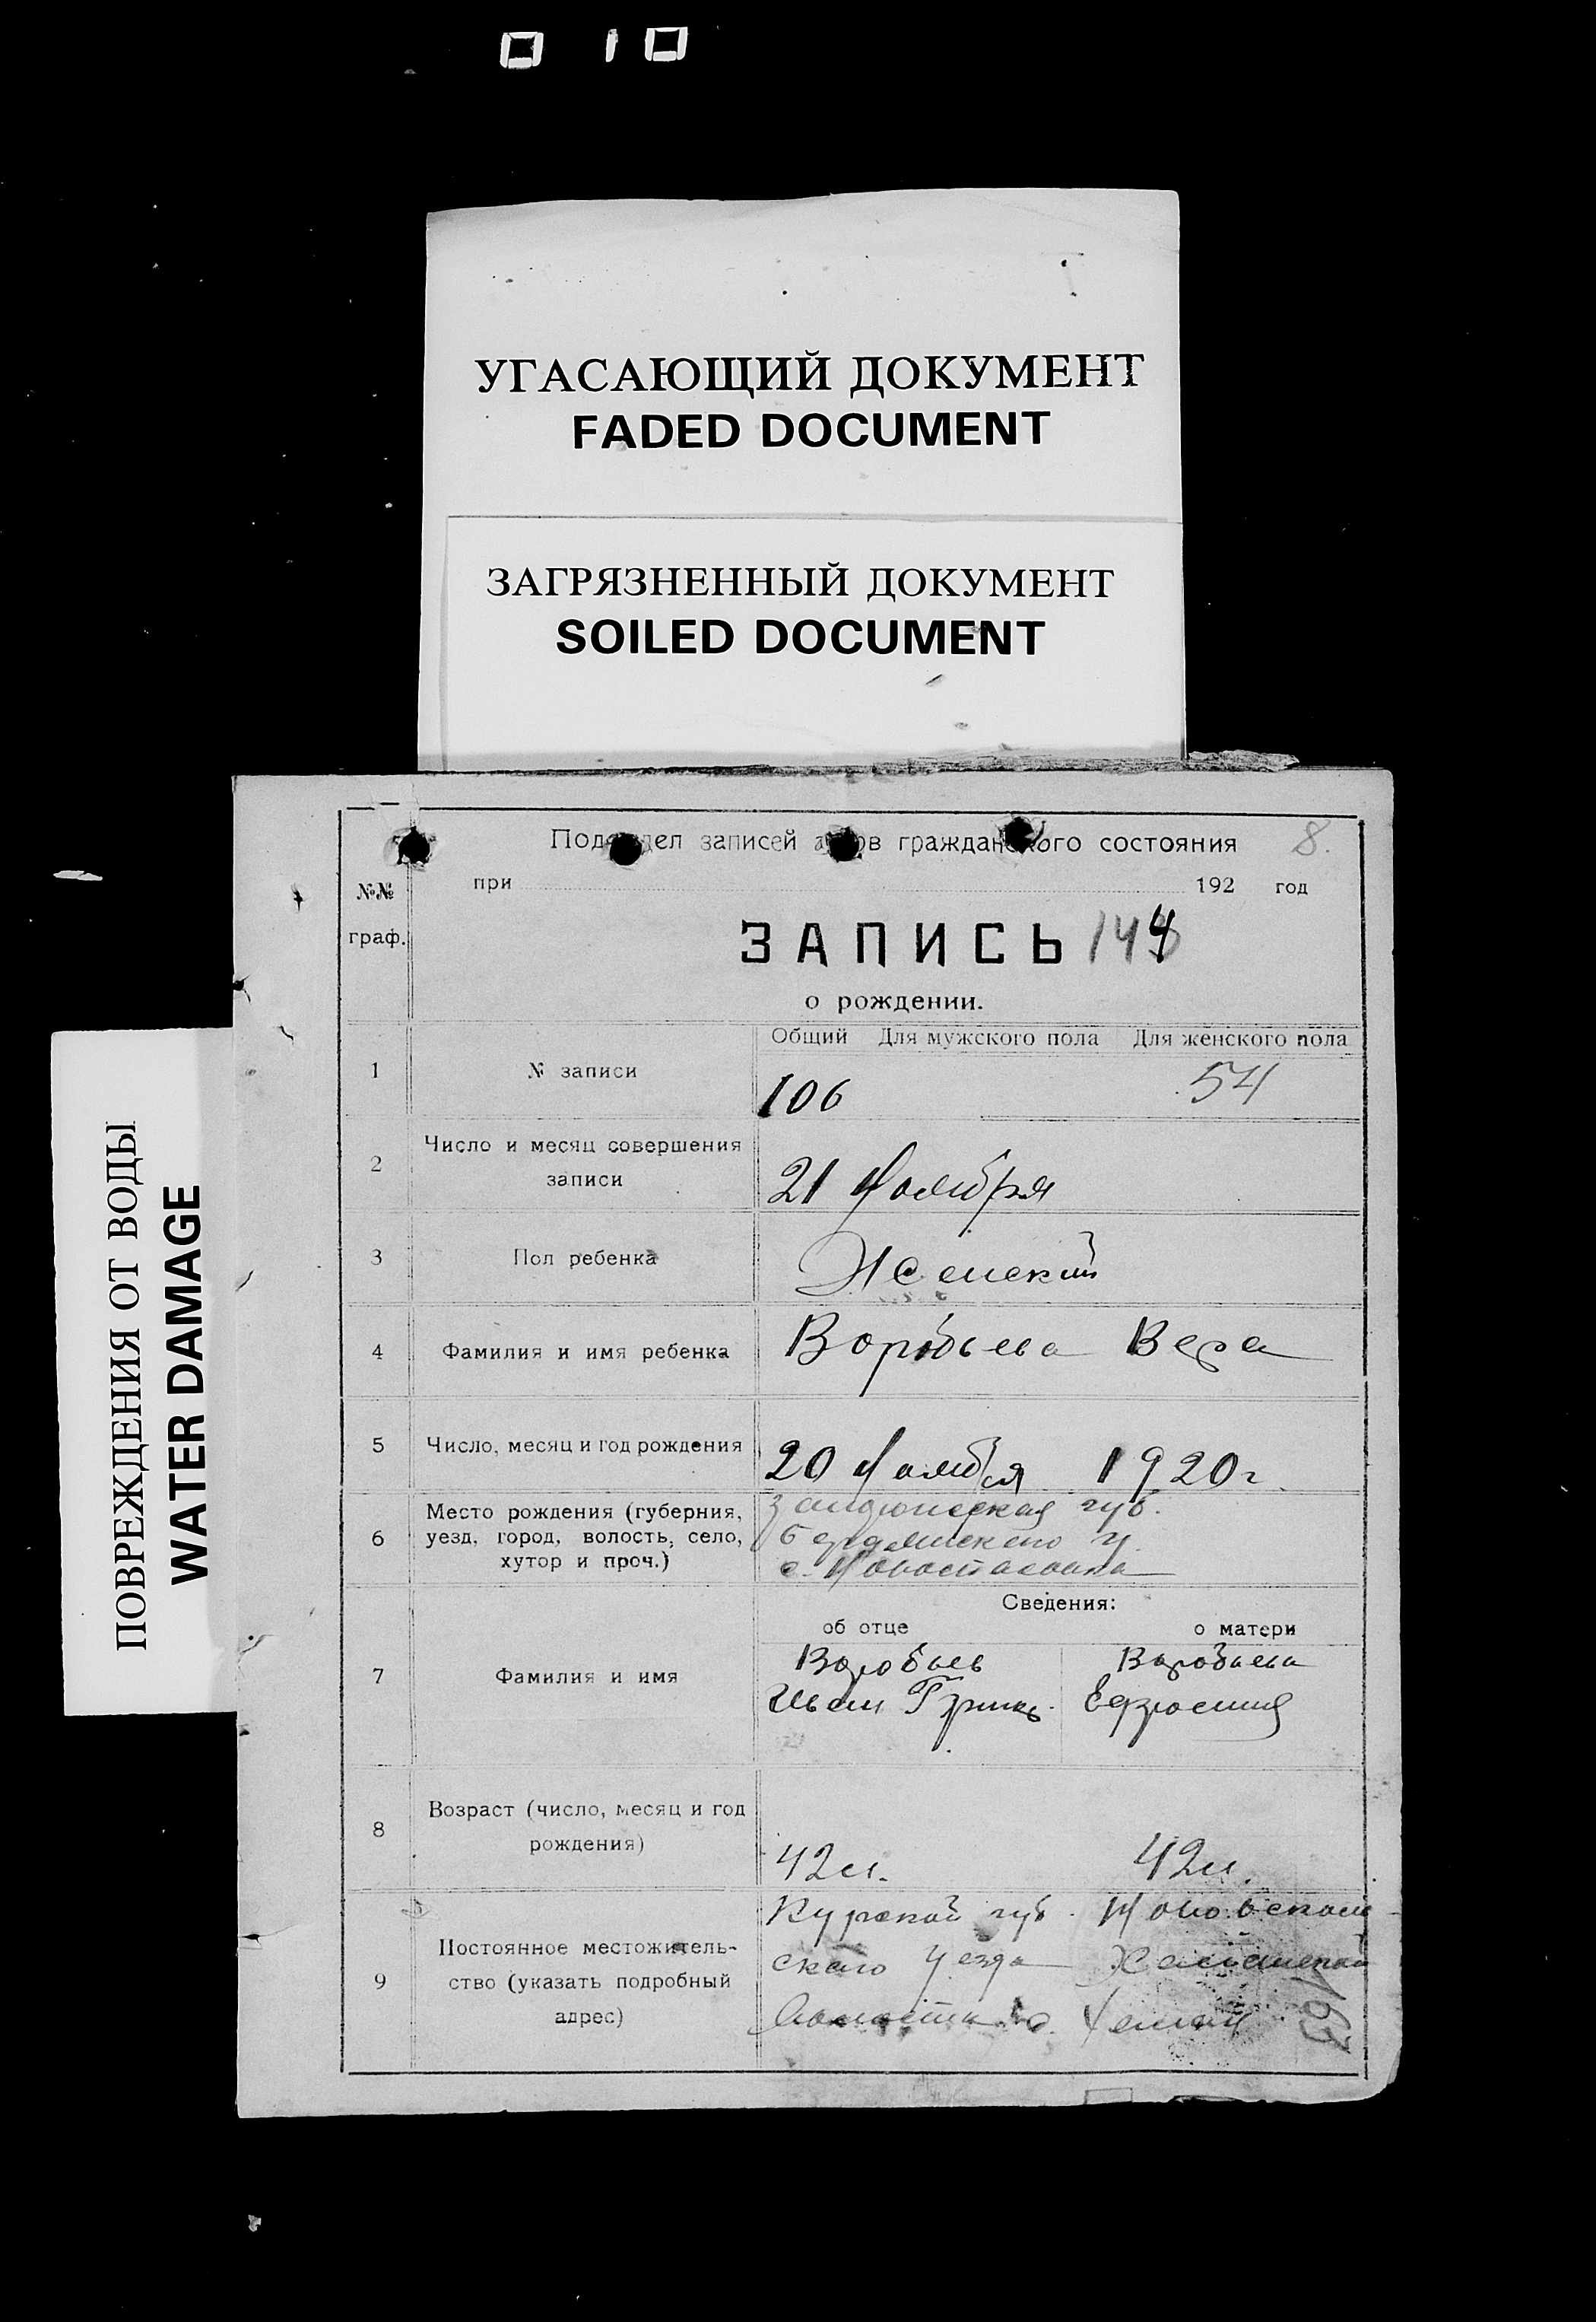 УГАСАЮЩИЙ ДОКУМЕНТ
FADED DOCUMENT
ЗАГРЯЗНЕННЫЙ ДОКУМЕНТ
SOILED DOCUMENT
ПОВРЕЖДЕНИЯ ОТ ВОДЫ
WATER DAMAGE
Подотдел записей актов гражданского состояния 8.
при 192 год
№№ граф.
ЗАПИСЬ 144
о рождении.
Общий Для мужского пола Для женского пола
1 № записи 106 54
2 Число и месяц совершения записи 21 Ноября
3 Пол ребенка Женский
4 Фамилия и имя ребенка Воробьева Вера
5 Число, месяц и год рождения 20 Ноября 1920 г.
6 Место рождения (губерния, уезд, город, волость, село, хутор и проч.)
губ.
Бердянского у.
с.
Сведения:
об отце о матери
7 Фамилия и имя
Воробьев Воробьева
Иван Ефросиния
8 Возраст (число, месяц и год рождения) 42 л. 42 л.
9 Постоянное местожительство (указать подробный адрес)
Курской губ.
ского Уезда
Волости с.
163